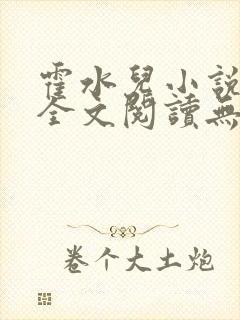 霍水兒小說
全文閱讀無
卷个大土炮